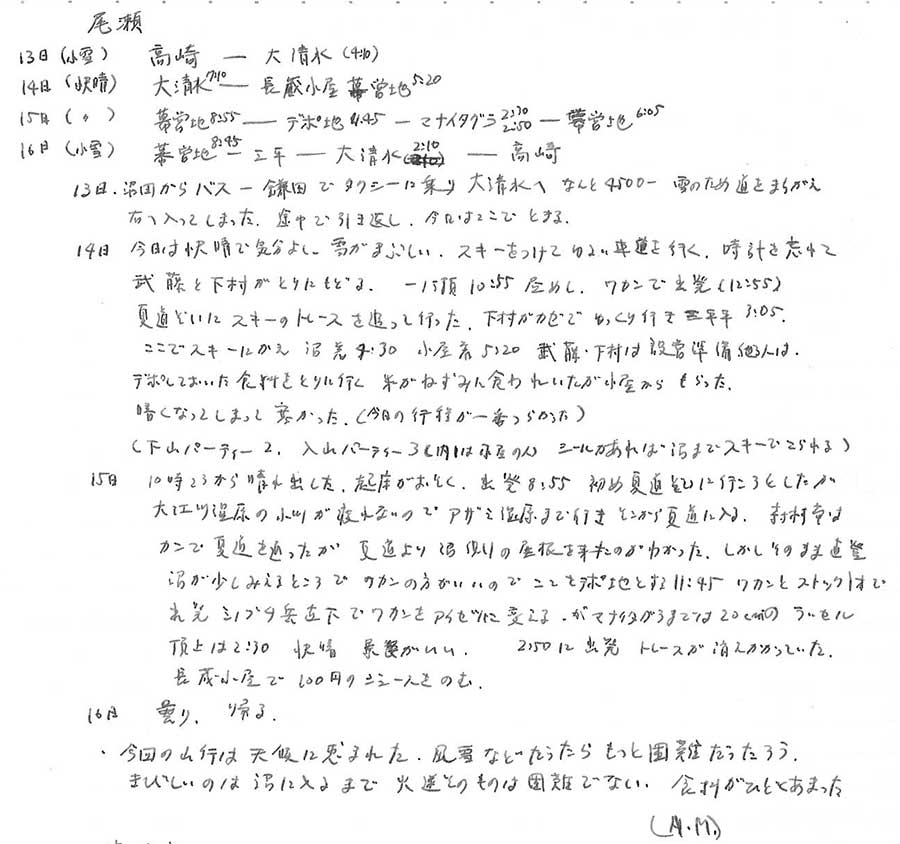 尾瀬
13日(小雪) 高崎 — 大清水(4:10)
14日(快晴) 大清水7:10 — 長蔵小屋 幕営地5:20
15日(〃) 幕営地8:55 — デポ地11:45 — マナイタグラ2:30 2:50 — 幕営地6:05
16日(小雪) 幕営地8:45 — 三平 — 大清水2:10 — 高崎
13日.沼田からバス—鎌田でタクシーに乗り大清水へ なんと4500— 雪のため道をまちがえ
右へ入ってしまった.途中で引き返し.今日はここでとまる.
14日 今日は快晴で気分よし.雪がまぶしい.スキーをつけてゆるい車道を行く.時計を忘れて
武藤と下村がとりにもどる. 一ノ瀬10:55 昼めし.ワカンで出発(12:55)
夏道ぞいにスキーのトレースを追って行った.下村がカゼでゆっくり行き 三平 3:05.
ここでスキーにかえ 沼尻4:30 小屋着5:20 武藤・下村は設営準備 他3人は.
デポしておいた食料をとりに行く 米がねずみに食われていたが小屋からもらった.
暗くなってしまって寒かった.(今日の行程が一番つらかった)
(下山パーティー2. 入山パーティー3(内1は小屋の人) シールがあれば沼までスキーでこられる)
15日 10時ごろから晴れ出した.起床がおそく.出発8:55 初め夏道に行こうとしたが
大江川湿原の小川が渡れないのでアザミ湿原まで行きそこから夏道に入る.
カンで夏道を追ったが 夏道より沼側の尾根を来たのがわかった.しかしそのまま直登
沼が少しみえるところでワカンの方がいいのでここをデポ地とする11:45 ワカンとストック1本で
出発 ミノブチ岳直下でワカンをアイゼンに変える.がマナイタグラまでは20cmのラッセル
頂上は2:30 快晴 景色がいい. 2:50に出発 トレースが消えかかっていた.
長蔵小屋で100円のをのむ.
16日 曇り. 帰る.
・今回の山行は天候に恵まれた.風雪などだったらもっと困難だったろう.
きびしいのは沼に入るまで そのものは困難でない. 食料がひとあまった
(M.M.)